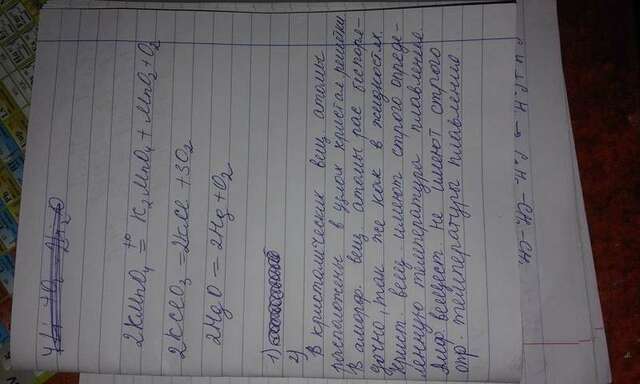 4Li + O2 = 2Li2O
2KMnO4 = t° K2MnO4 + MnO2 + O2
2KClO3 = 2KCl + 3O2
2HgO = 2Hg + O2
1)
2)
В кристалических вещ атомы
расположены в узлах кристал решётки
В аморф вещ атомы рас беспоря-
дочно, так же как в жидкостях
Крист. вещ имеют строго опреде-
ленную температуру плавления
Амф веществ не имеют строго
опр. температуры плавления